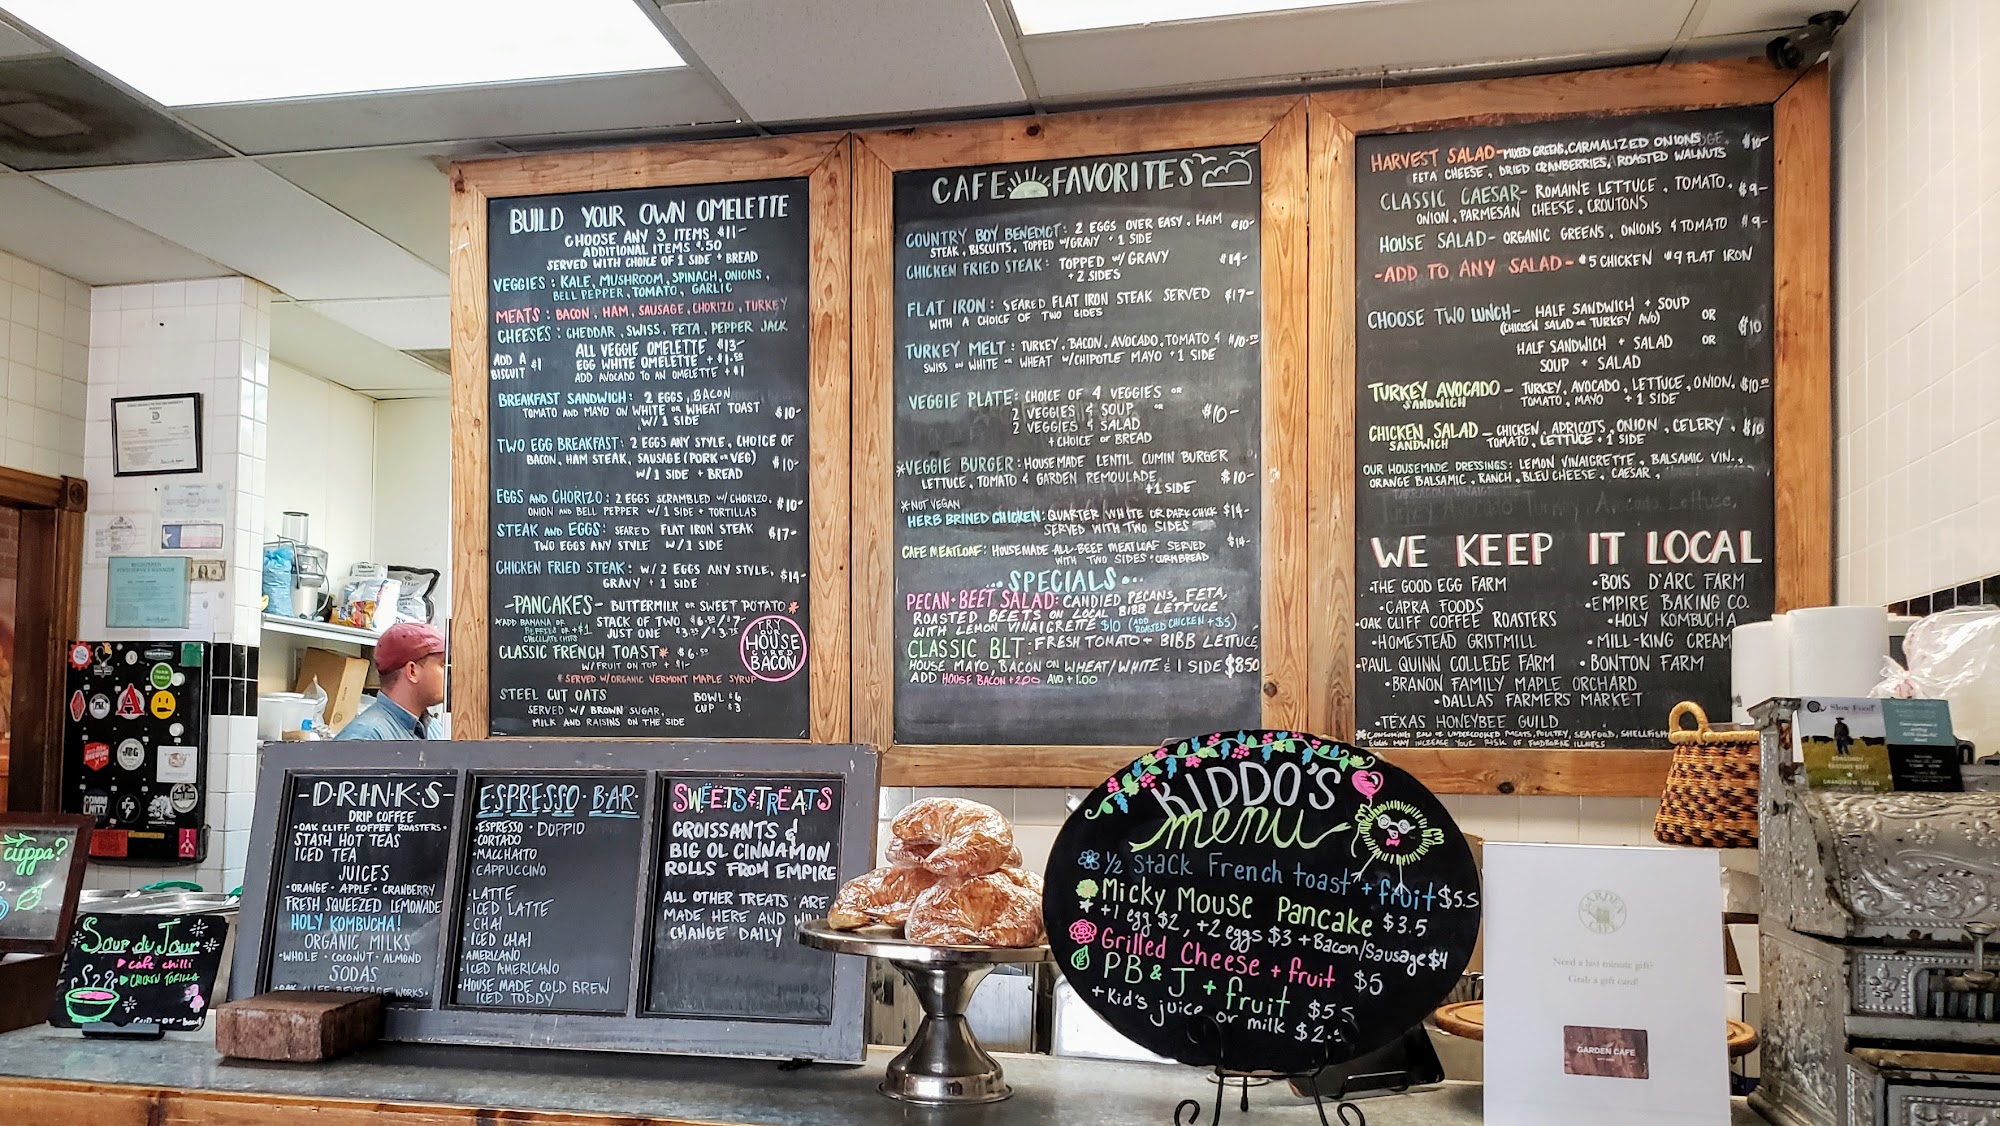 BUILD YOUR OWN OMELETTE
CHOOSE ANY 3 ITEMS $11-
ADDITIONAL ITEMS $.50
SERVED WITH CHOICE OF 1 SIDE + BREAD
VEGGIES: KALE, MUSHROOM, SPINACH, ONIONS,
BELL PEPPER, TOMATO, GARLIC
MEATS: BACON, HAM, SAUSAGE, CHORIZO, TURKEY
CHEESES: CHEDDAR, SWISS, FETA, PEPPER JACK
ADD A BISCUIT $1
ALL VEGGIE OMELETTE $13-
EGG WHITE OMELETTE + $1.50
ADD AVOCADO TO AN OMELETTE + $1
BREAKFAST SANDWICH: 2 EGGS, BACON
TOMATO AND MAYO ON WHITE OR WHEAT TOAST
W/ 1 SIDE $10-
TWO EGG BREAKFAST: 2 EGGS ANY STYLE, CHOICE OF
BACON, HAM STEAK, SAUSAGE (PORK OR VEG) $10-
W/1 SIDE + BREAD
EGGS AND CHORIZO: 2 EGGS SCRAMBLED W/CHORIZO,
ONION AND BELL PEPPER W/1 SIDE + TORTILLAS $10-
STEAK AND EGGS: SEARED FLAT IRON STEAK
TWO EGGS ANY STYLE W/1 SIDE $17-
CHICKEN FRIED STEAK: W/2 EGGS ANY STYLE,
GRAVY + 1 SIDE $14-
-PANCAKES- BUTTERMILK OR SWEET POTATO*
*ADD BANANA OR
BERRIES OR +$1
CHOCOLATE CHIPS
STACK OF TWO $6.50/$7-
JUST ONE $3.25/$3.75
CLASSIC FRENCH TOAST* $6.50
W/FRUIT ON TOP + $1-
*SERVED W/ORGANIC VERMONT MAPLE SYRUP
TRY
OUR
HOUSE
CURED
BACON
STEEL CUT OATS
SERVED W/ BROWN SUGAR,
MILK AND RAISINS ON THE SIDE
BOWL $6
CUP $3
CAFE FAVORITES
COUNTRY BOY BENEDICT: 2 EGGS OVER EASY, HAM
STEAK, BISCUITS, TOPPED W/GRAVY + 1 SIDE $10-
CHICKEN FRIED STEAK: TOPPED W/GRAVY
+ 2 SIDES $14-
FLAT IRON: SEARED FLAT IRON STEAK SERVED
WITH A CHOICE OF TWO SIDES $17-
TURKEY MELT: TURKEY, BACON, AVOCADO, TOMATO &
SWISS ON WHITE OR WHEAT W/CHIPOTLE MAYO + 1 SIDE $10.50
VEGGIE PLATE: CHOICE OF 4 VEGGIES OR
2 VEGGIES & SOUP OR
2 VEGGIES & SALAD $10-
+ CHOICE OF BREAD
*VEGGIE BURGER: HOUSEMADE LENTIL CUMIN BURGER
LETTUCE, TOMATO & GARDEN REMOULADE
+1 SIDE $10-
*NOT VEGAN
HERB BRINED CHICKEN: QUARTER WHITE OR DARK CHICK $14-
SERVED WITH TWO SIDES
CAFE MEATLOAF: HOUSEMADE ALL-BEEF MEATLOAF SERVED
WITH TWO SIDES + CORNBREAD $14-
...SPECIALS...
PECAN-BEET SALAD: CANDIED PECANS, FETA,
ROASTED BEETS ON LOCAL BIBB LETTUCE
WITH LEMON VINAIGRETTE $10 (ADD ROASTED CHICKEN + $5)
CLASSIC BLT: FRESH TOMATO + BIBB LETTUCE,
HOUSE MAYO, BACON ON WHEAT/WHITE & 1 SIDE $8.50
ADD HOUSE BACON +2.00 AVO +1.00
HARVEST SALAD- MIXED GREENS, CARMALIZED ONIONS
FETA CHEESE, DRIED CRANBERRIES, ROASTED WALNUTS $10-
CLASSIC CAESAR- ROMAINE LETTUCE, TOMATO,
ONION, PARMESAN CHEESE, CROUTONS $9-
HOUSE SALAD- ORGANIC GREENS, ONIONS & TOMATO $9-
-ADD TO ANY SALAD- $5 CHICKEN $9 FLAT IRON
CHOOSE TWO LUNCH- HALF SANDWICH + SOUP
(CHICKEN SALAD OR TURKEY AVO) OR
HALF SANDWICH + SALAD OR $10
SOUP + SALAD
TURKEY AVOCADO SANDWICH - TURKEY, AVOCADO, LETTUCE, ONION,
TOMATO, MAYO + 1 SIDE
CHICKEN SALAD SANDWICH - CHICKEN, APRICOTS, ONION, CELERY,
TOMATO, LETTUCE + 1 SIDE $10
OUR HOUSEMADE DRESSINGS: LEMON VINAIGRETTE, BALSAMIC VIN.,
ORANGE BALSAMIC, RANCH, BLEU CHEESE, CAESAR,
WE KEEP IT LOCAL
•THE GOOD EGG FARM
•CAPRA FOODS
•OAK CLIFF COFFEE ROASTERS
•HOMESTEAD GRISTMILL
•PAUL QUINN COLLEGE FARM
•BRANON FAMILY MAPLE ORCHARD
•DALLAS FARMERS MARKET
•TEXAS HONEYBEE GUILD
•BOIS D'ARC FARM
•EMPIRE BAKING CO.
•HOLY KOMBUCHA
•MILL-KING CREAM
•BONTON FARM
*CONSUMING RAW OR UNDERCOOKED MEATS, POULTRY, SEAFOOD, SHELLFISH
EGGS MAY INCREASE YOUR RISK OF FOODBORNE ILLNESS
-DRINKS-
DRIP COFFEE
•OAK CLIFF COFFEE ROASTERS•
STASH HOT TEAS
ICED TEA
JUICES
•ORANGE • APPLE • CRANBERRY
FRESH SQUEEZED LEMONADE
HOLY KOMBUCHA!
ORGANIC MILKS
•WHOLE • COCONUT • ALMOND
SODAS
•OAK CLIFF BEVERAGE WORKS•
ESPRESSO BAR
•ESPRESSO • DOPPIO
•CORTADO
•MACCHAITO
•CAPPUCCINO
•LATTE
•ICED LATTE
•CHAI
•ICED CHAI
•AMERICANO
•ICED AMERICANO
•HOUSE MADE COLD BREW
ICED TODDY
SWEETS & TREATS
CROISSANTS &
BIG OL CINNAMON
ROLLS FROM EMPIRE
ALL OTHER TREATS ARE
MADE HERE AND WILL
CHANGE DAILY
KIDDO'S
menu
1/2 Stack French toast + fruit $5.5
Micky Mouse Pancake $3.5
+1 egg $2, +2 eggs $3 + Bacon/Sausage $4
Grilled Cheese + fruit $5
PB & J + fruit $5
+ Kid's juice or milk $2.
cuppa?
Soup du Jour
cafe chilli
CHICKEN TORTILLA
Slow Food
GARDEN CAFE
Need a last minute gift?
Grab a gift card!
GARDEN CAFE